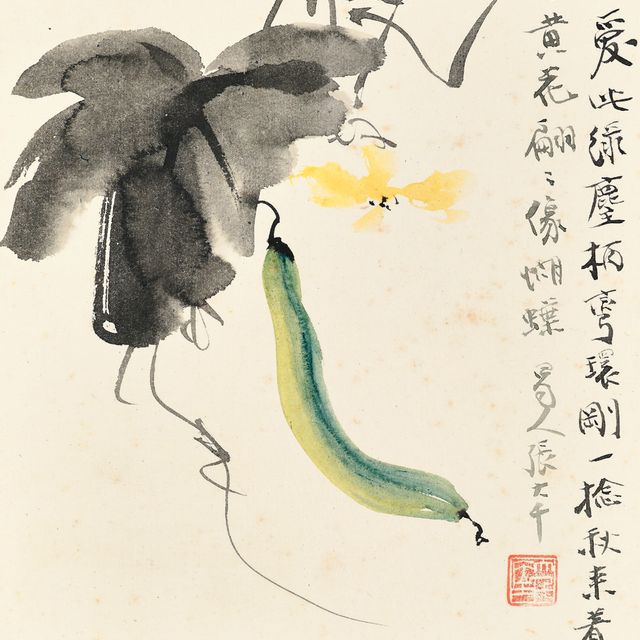 愛此綠麈柄彎環剛一捻秋來着
黃花翩〻像蝴蝶 蜀人張大千